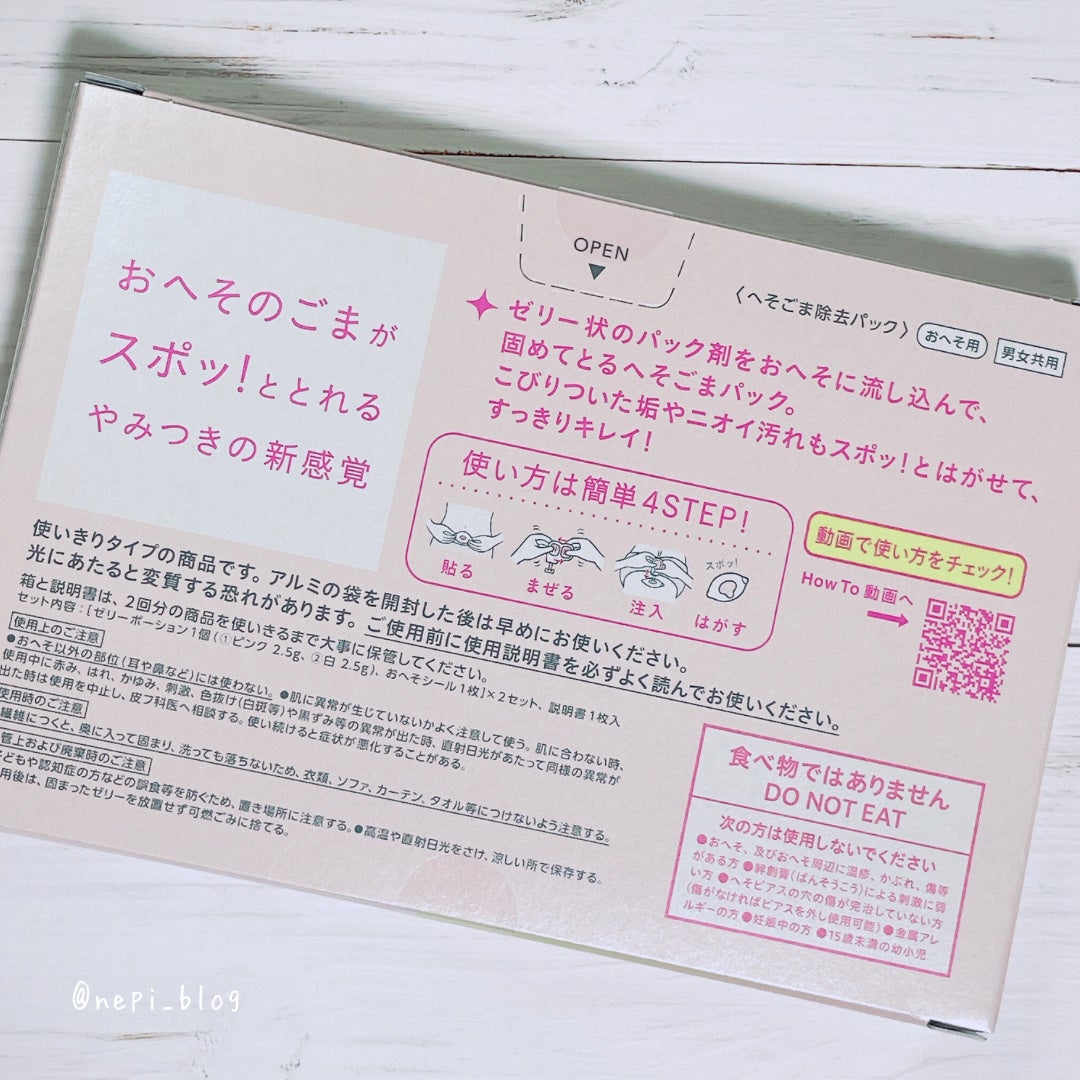 OPEN
〈へそごま除去パック〉
おへそ用
男女共用
おへそのごまが
スポッ!ととれる
やみつきの新感覚
ゼリー状のパック剤をおへそに流し込んで、
固めてとるへそごまパック。
こびりついた垢やニオイ汚れもスポッ!とはがせて、
すっきりキレイ!
使い方は簡単4STEP!
貼る
まぜる
注入
スポッ!
はがす
動画で使い方をチェック!
How To 動画へ
使いきりタイプの商品です。アルミの袋を開封した後は早めにお使いください。
光にあたると変質する恐れがあります。ご使用前に使用説明書を必ずよく読んでお使いください。
箱と説明書は、2回分の商品を使いきるまで大事に保管してください。
セット内容:[ゼリーポーション1個(①ピンク 2.5g、②白 2.5g)、おへそシール1枚]×2セット、説明書1枚入
使用上のご注意
●おへそ以外の部位(耳や鼻など)には使わない。●肌に異常が生じていないかよく注意して使う。肌に合わない時、
使用中に赤み、はれ、かゆみ、刺激、色抜け(白斑等)や黒ずみ等の異常が出た時、直射日光があたって同様の異常が
出た時は使用を中止し、皮フ科医へ相談する。使い続けると症状が悪化することがある。
使用時のご注意
繊維につくと、奥に入って固まり、洗っても落ちないため、衣類、ソファ、カーテン、タオル等につけないよう注意する。
管上および廃棄時のご注意
子どもや認知症の方などの誤食等を防ぐため、置き場所に注意する。●高温や直射日光をさけ、涼しい所で保存する。
用後は、固まったゼリーを放置せず可燃ごみに捨てる。
食べ物ではありません
DO NOT EAT
次の方は使用しないでください
●おへそ、及びおへそ周辺に湿疹、かぶれ、傷等
がある方 ●絆創膏(ばんそうこう)による刺激に弱
い方 ●へそピアスの穴の傷が完治していない方
(傷がなければピアスを外し使用可能) ●金属アレ
ルギーの方 ●妊娠中の方 ●15歳未満の幼小児
@nepi_blog